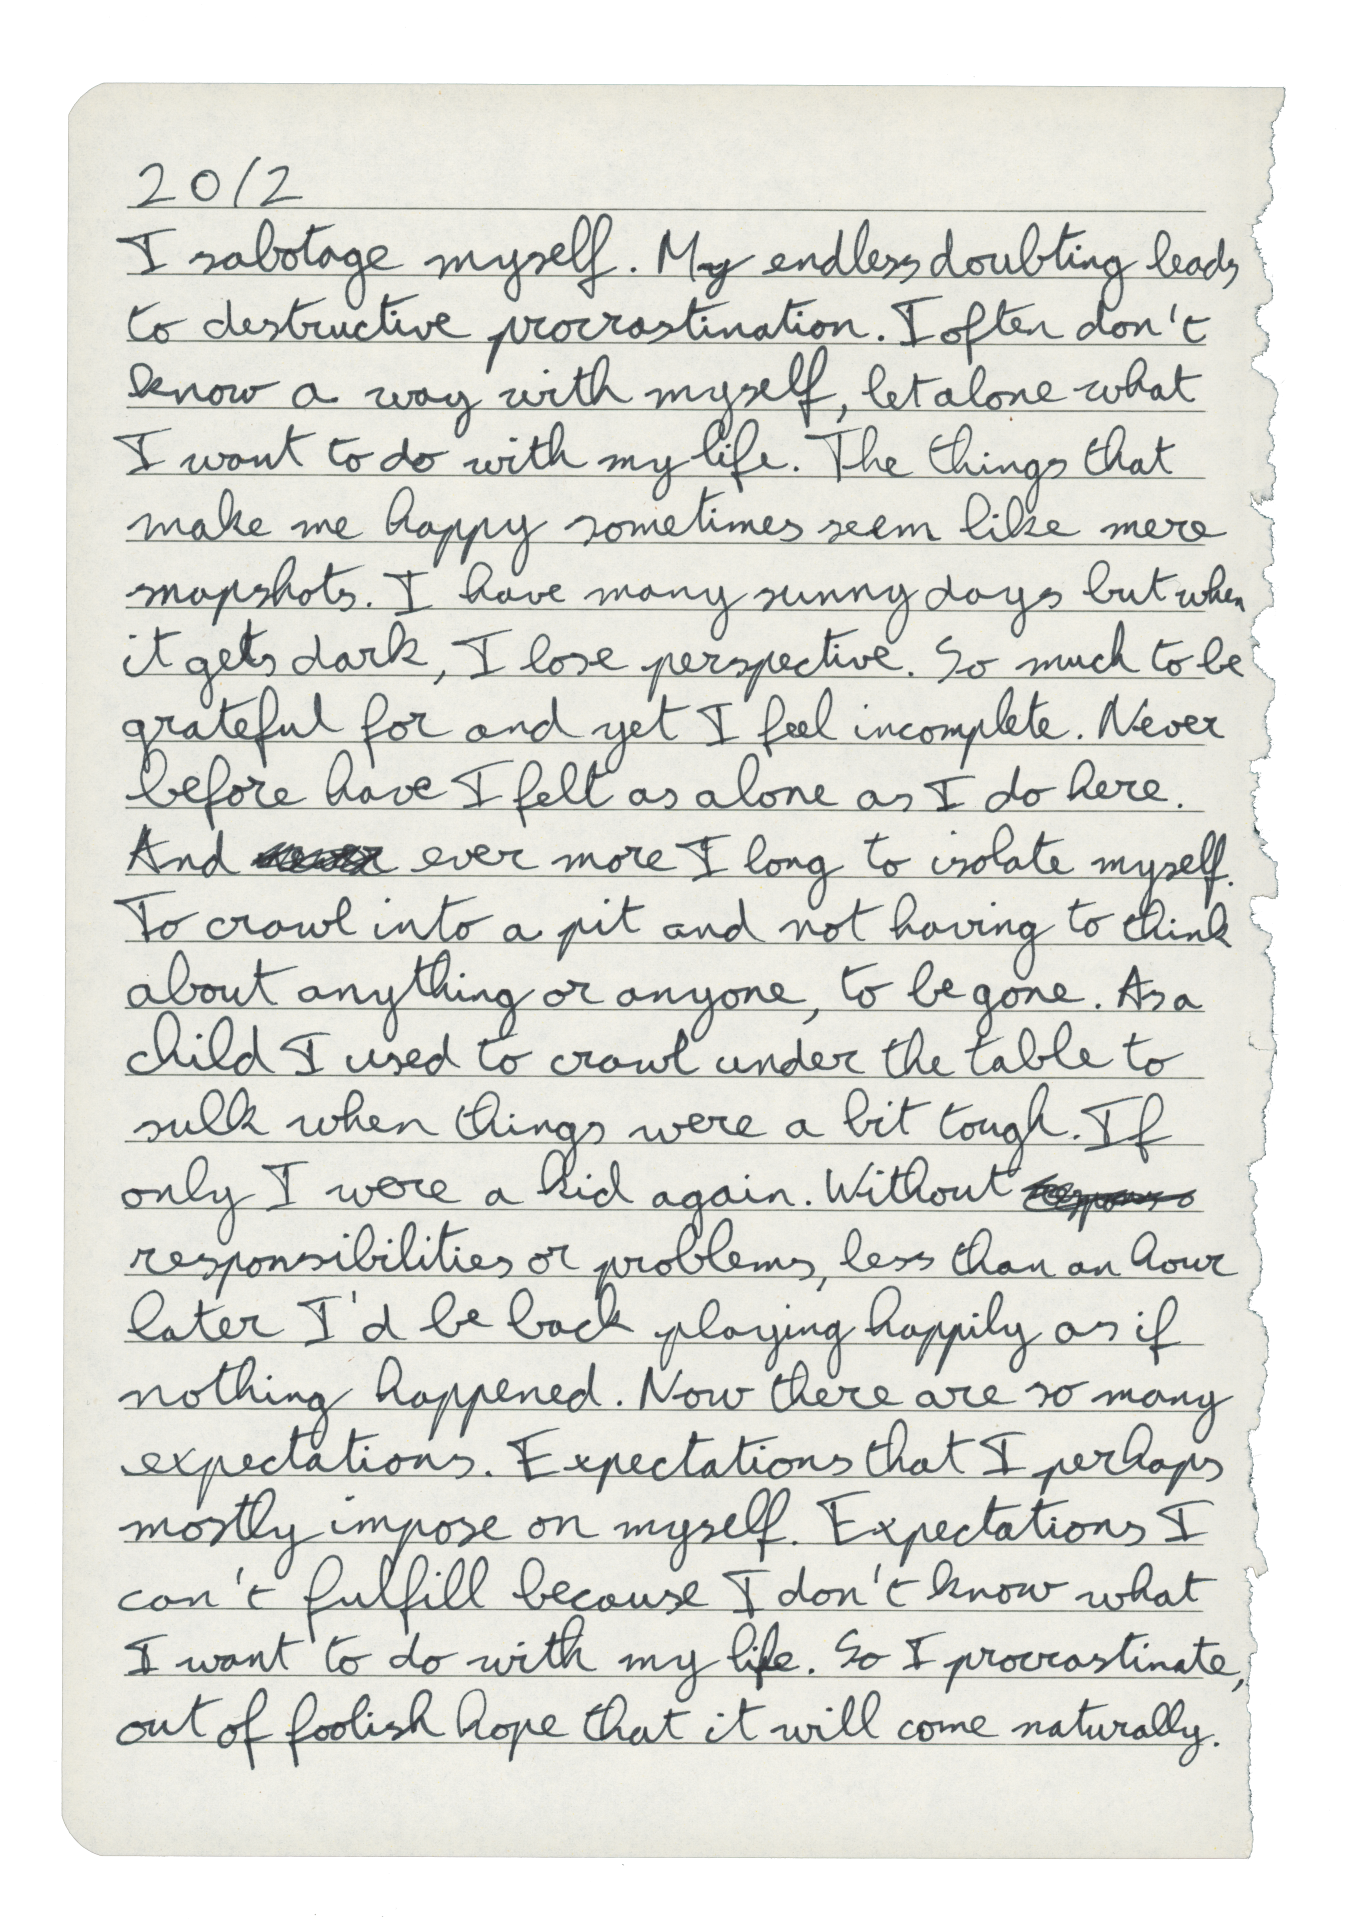 20/2
I sabotage myself. My endless doubting leads
to destructive procrastination. I often don't
know a way with myself, let alone what
I want to do with my life. The things that
make me happy sometimes seem like mere
snapshots. I have many sunny days but when
it gets dark, I lose perspective. So much to be
grateful for and yet I feel incomplete. Never
before have I felt as alone as I do here.
And ever more I long to isolate myself.
To crawl into a pit and not having to think
about anything or anyone, to be gone. As a
child I used to crawl under the table to
sulk when things were a bit tough. If
only I were a kid again. Without
responsibilities or problems, less than an hour
later I'd be back playing happily as if
nothing happened. Now there are so many
expectations. Expectations that I perhaps
mostly impose on myself. Expectations I
can't fulfill because I don't know what
I want to do with my life. So I procrastinate,
out of foolish hope that it will come naturally.